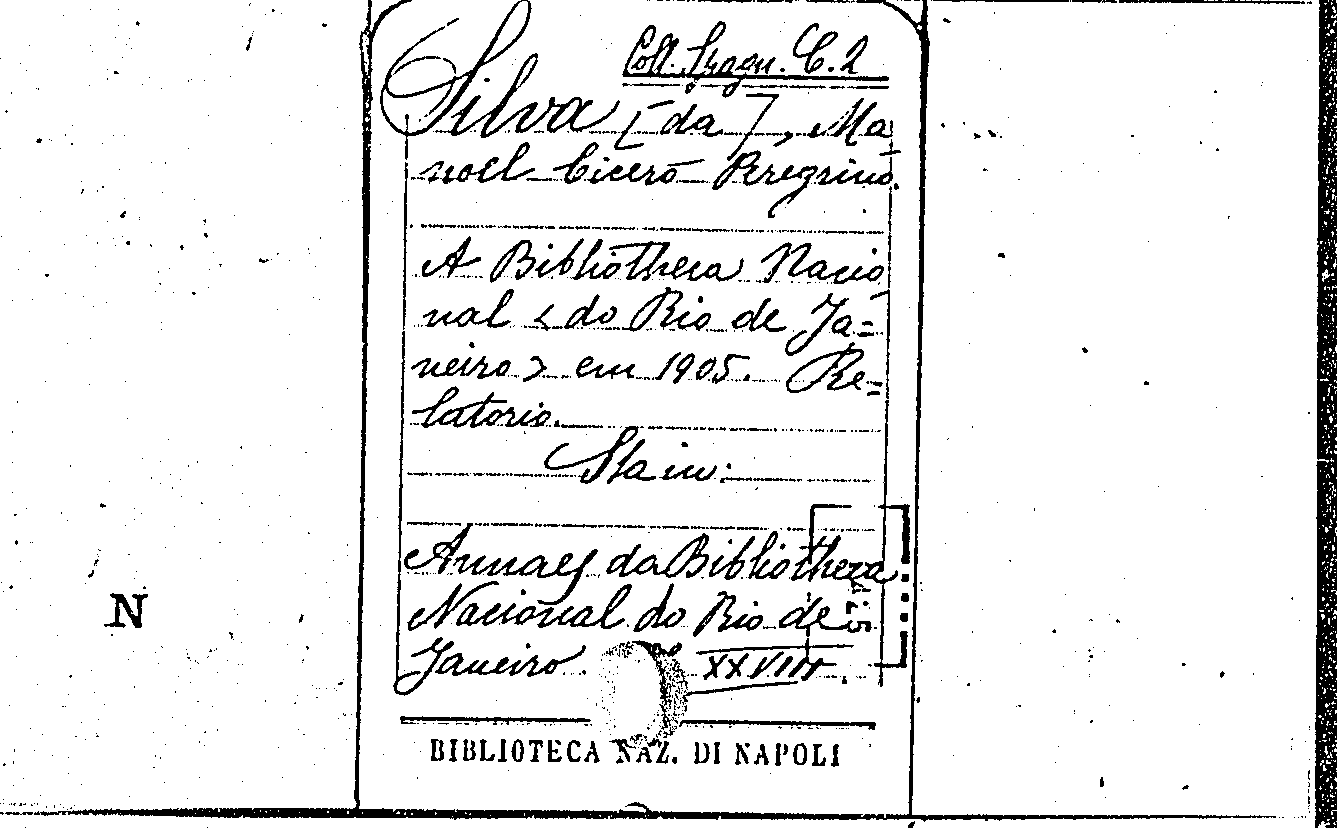 Coll. Sragn. C. 2
Silva [da], Ma-
noel Cicero Peregrino.
A Bibliotheca Nacio-
nal <do Rio de Ja=
neiro> em 1905. Re=
latorio.
Sta in:
Annaes da Bibliotheca
Nacional do Rio de
Janeiro. XXVIII.
N
BIBLIOTECA NAZ. DI NAPOLI